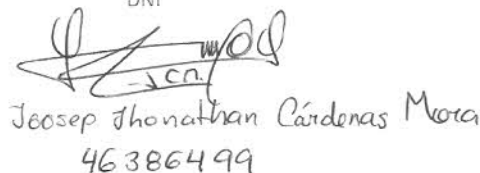 DNI
Joosep Jhonathan Cárdenas Mora
46386499